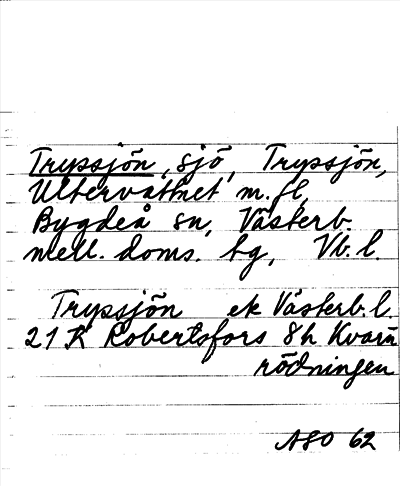 Tryssjön, sjö, Tryssjön,
Ultervattnet m.fl,
Bygdeå sn, Västerb.
mell. doms. tg, Vb. l.
Tryssjön ek Västerb. l.
21 K Robertsfors 8h Kvarn
rödningen
ASO 62